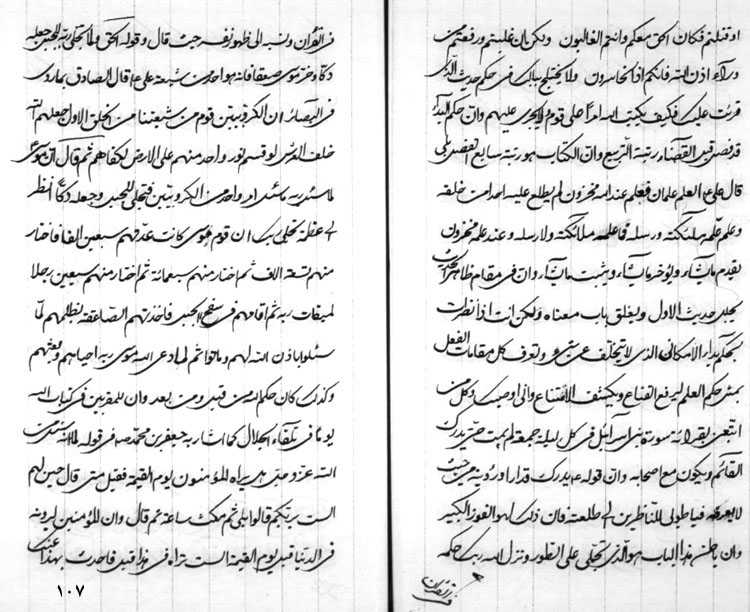 او قتلتم فكان الحق معكم وانتم الغالبون ولكن ان غلبتم ورفعتم من
وراء اذن الله فانكم اذا لخاسرون ولا يختلج ببالك في حكم حديث الذي
قرئت عليك فكيف يكتب الله امرا على قوم لا يجرى عليهم وان حكم البدآء
قبل القضاء رتبة التربيع وان الكتاب هو رتبة سابع الفعل
قال على ع العلم علمان فعلم عند الله مخزون لم يطلع عليه احدا من خلقه
وعلم علمه ملئكته ورسله فما علمه ملائكته ولا رسله وعنده علم مخزون
يقدم ما يشآء ويؤخر ما يشآء ويثبت ما يشآء وان في مقام ظاهر
حديث الاول ويغلق باب معناه ولكن انت اذا نظرت
بحكم بدآء الامكاني الذي لا يتخلف عن شيء وتعرف كل مقامات الفعل
بمثل حكم العلم ليرفع القناع ويكشف الامتناع واني اوصيك وكل من
اتبعن بقرائة سورة بني اسرآئيل في كل ليلة جمعة لم يمت حتى يدرك
القآئم ويكون مع اصحابه وان قوله ع يدرك قد اراد رؤيته من حيث
لا يعرفه فيا طوبى للناظرين الى طلعته فان ذلك لهو الفوز الكبير
وان باطن هذا الباب هو الذي تجلى على الطور ونزل الله ربك حكمه
في القرآن ونسبه الى ظهور نفسه حيث قال وقوله الحق ولما تجلى ربه للجبل جعله
دكا وخر موسى صعقا فانه هو احد من شيعة على ع قال الصادق ع بما روى
في البصائر ان الكروبيين قوم من شيعتنا من الخلق الاول جعلهم الله
خلف العرش لو قسم نور واحد منهم على الارض لكفاهم ثم قال ان موسى
ما سئل ربه ما سئل امر واحدا من الكروبيين فتجلى للجبل وجعله دكا انظر
الى عظمة تجلى ربك ان قوم موسى كانت عدتهم سبعين الفا فاختار
منهم تسعة الاف ثم اختار منهم سبعمائة ثم اختار منهم سبعين رجلا
لميقات ربه ثم اقامهم في سفح الجبل فاخذتهم الصاعقة بظلمهم لما
سئلوا باذن الله لهم وماتوا ثم لما دعى الله موسى ربه احياهم وبعثهم
وكذلك كان حكم الله من قبل ومن بعد وان للمقربين في كتاب الله
يوما في تلقآء الجلال كما اشار به جعفر بن محمد ص في قوله لما سئل عن
الله عز وجل هل يراه المؤمنون يوم القيمة فقيل متى قال حين لهم
الست بربكم قالوا بلى ثم مكث ساعة ثم قال وان المؤمنين ليرونه
في الدنيا قبل يوم القيمة الست تراه في هذا قبل فاحدث بهذا عنك
١٠٧